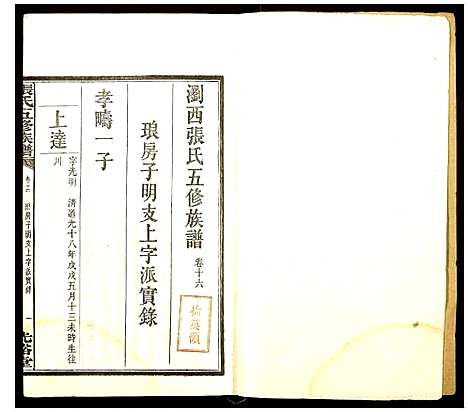 瀏西張氏五修族譜 卷十六
琅房子明支上字派實錄
孝疇一子
上達 字光明 清道光十八年戊戌五月十三未時生往
川
張氏五修族譜 卷十六 琅房子明支上字派實錄 一 光裕堂